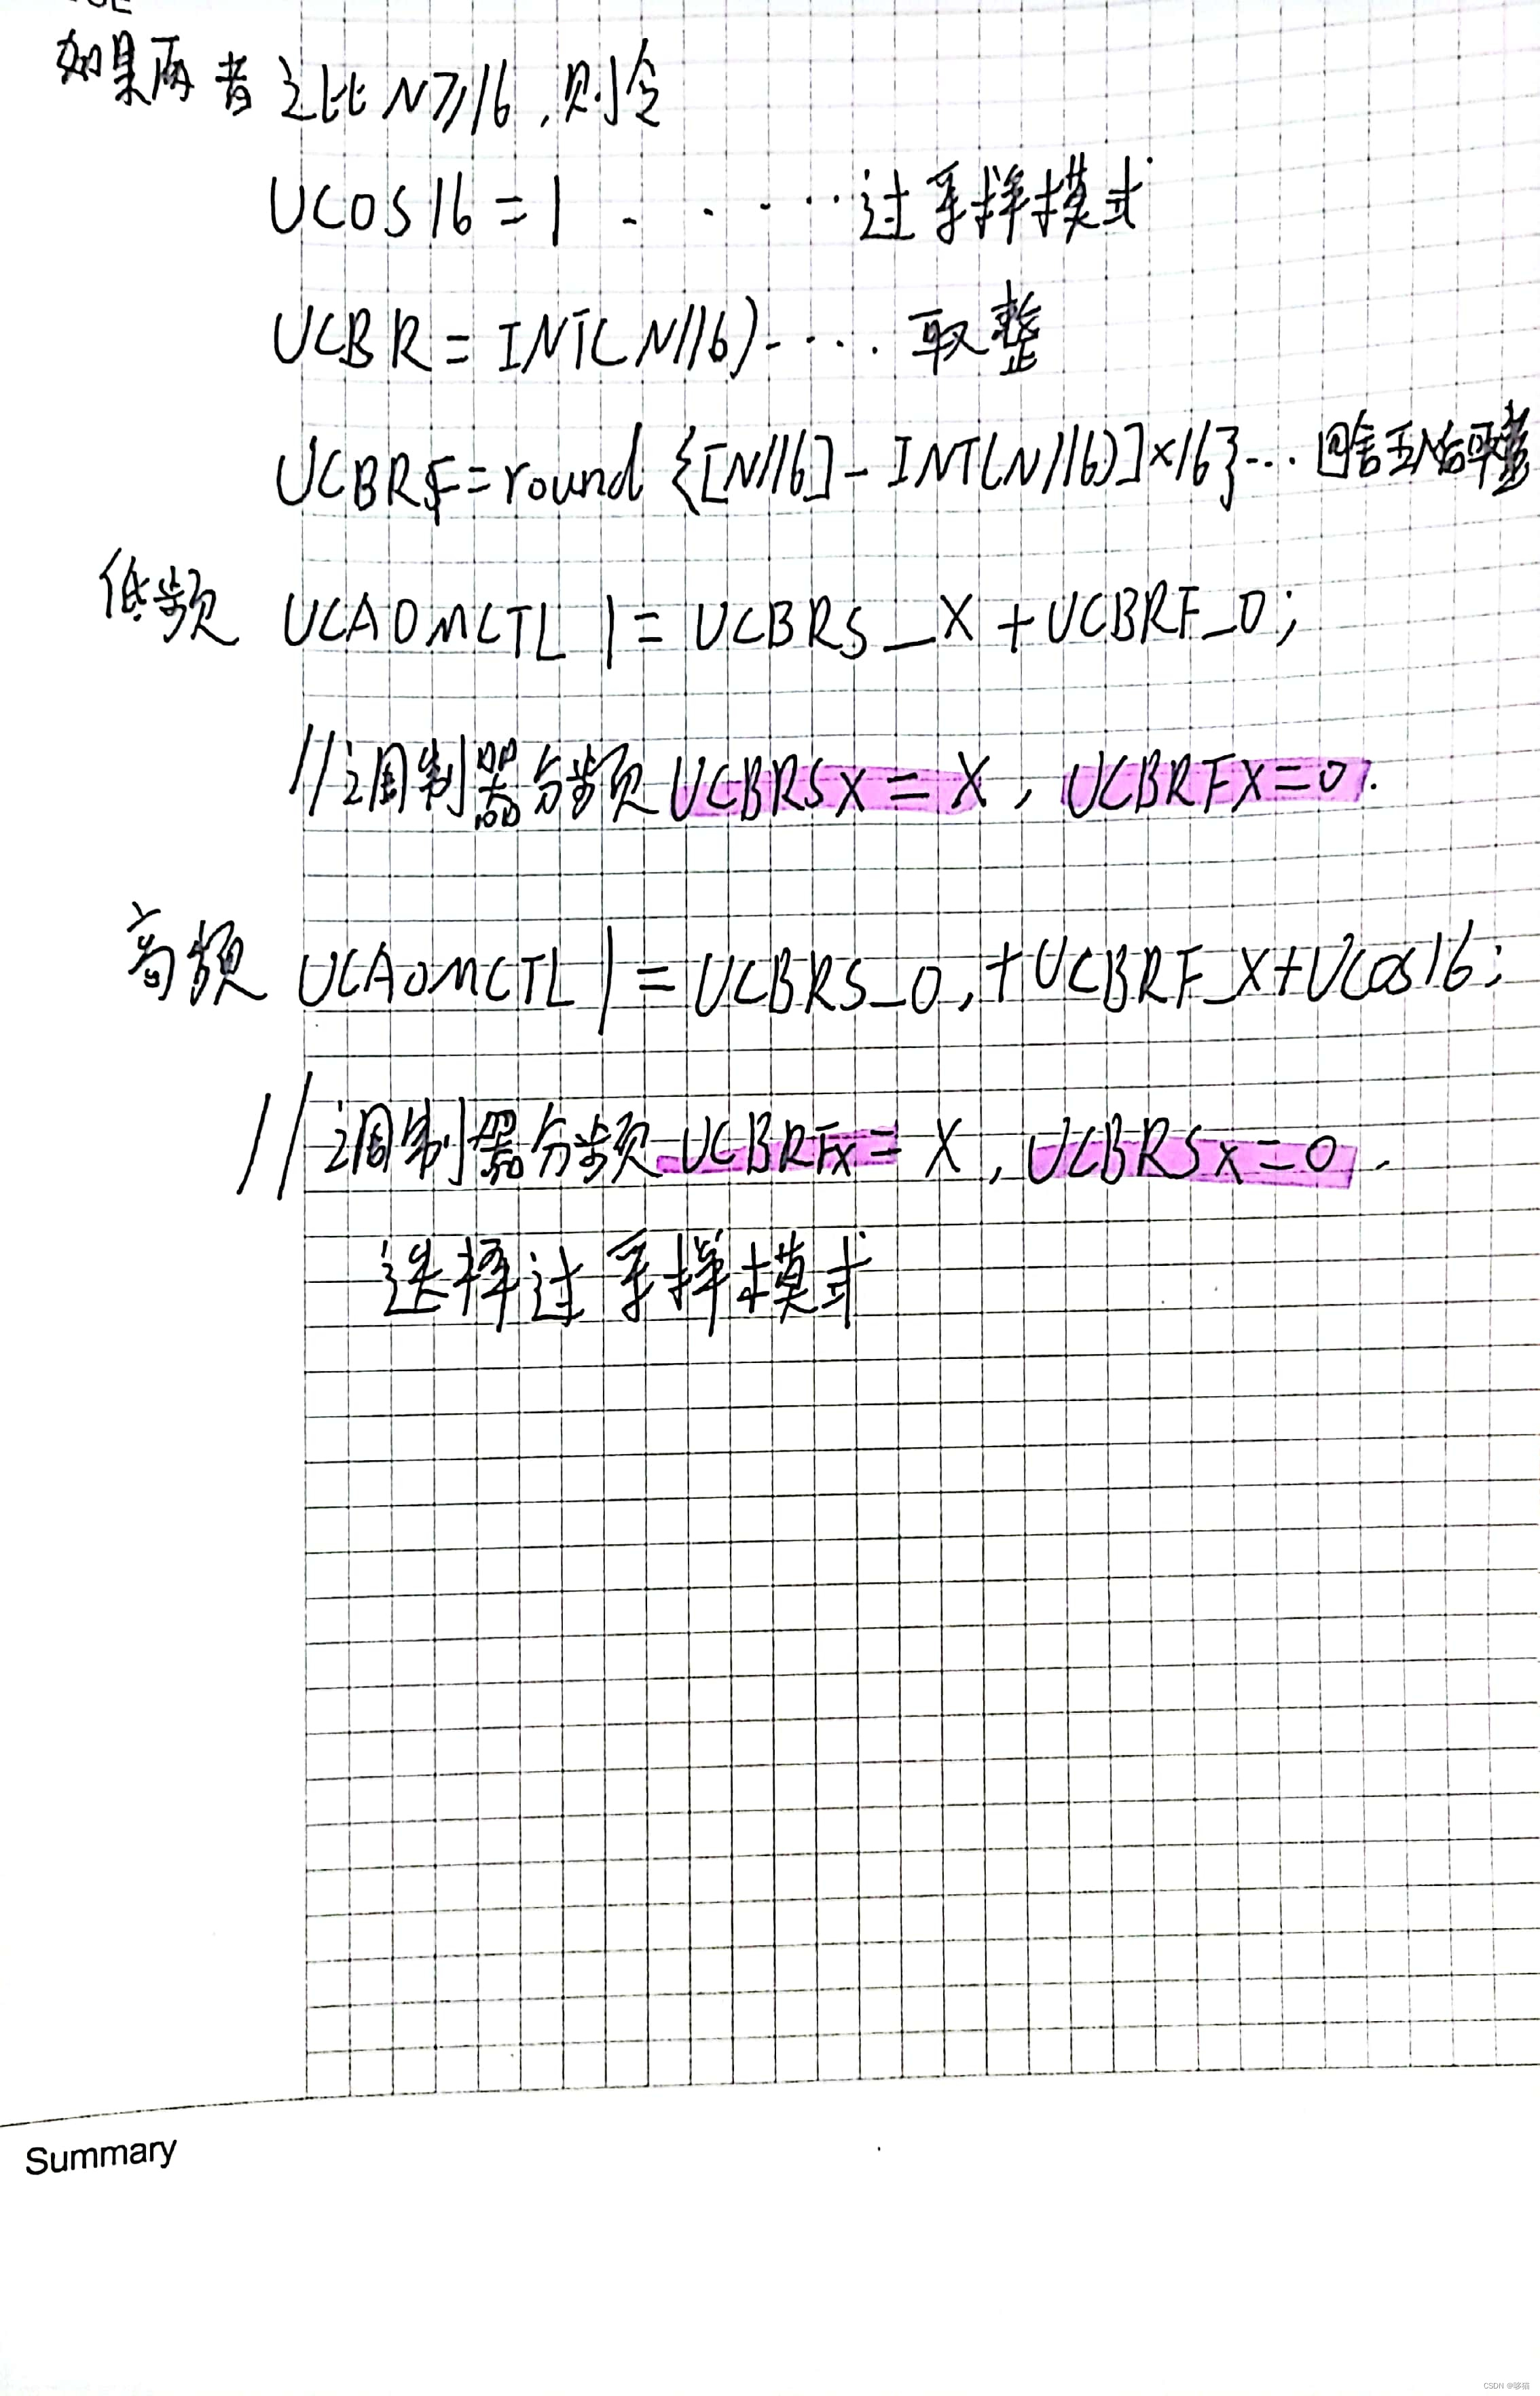 如果两者之比 N≥16,则令
UCOS16=1 ..... 过采样模式
UCBR=INT(N/16)..... 取整
UCBRF=round{[N/16]-INT(N/16)]×16}... 四舍五入后取整
低频 UCA0MCTL |= UCBRS_X+UCBRF_0;
//调制器分频 UCBRSX=X, UCBRFX=0.
高频 UCA0MCTL |= UCBRS_0,+UCBRF_X+UCOS16;
//调制器分频 UCBRFx=X, UCBRSx=0.
选择过采样模式
Summary
CSDN @哆猫